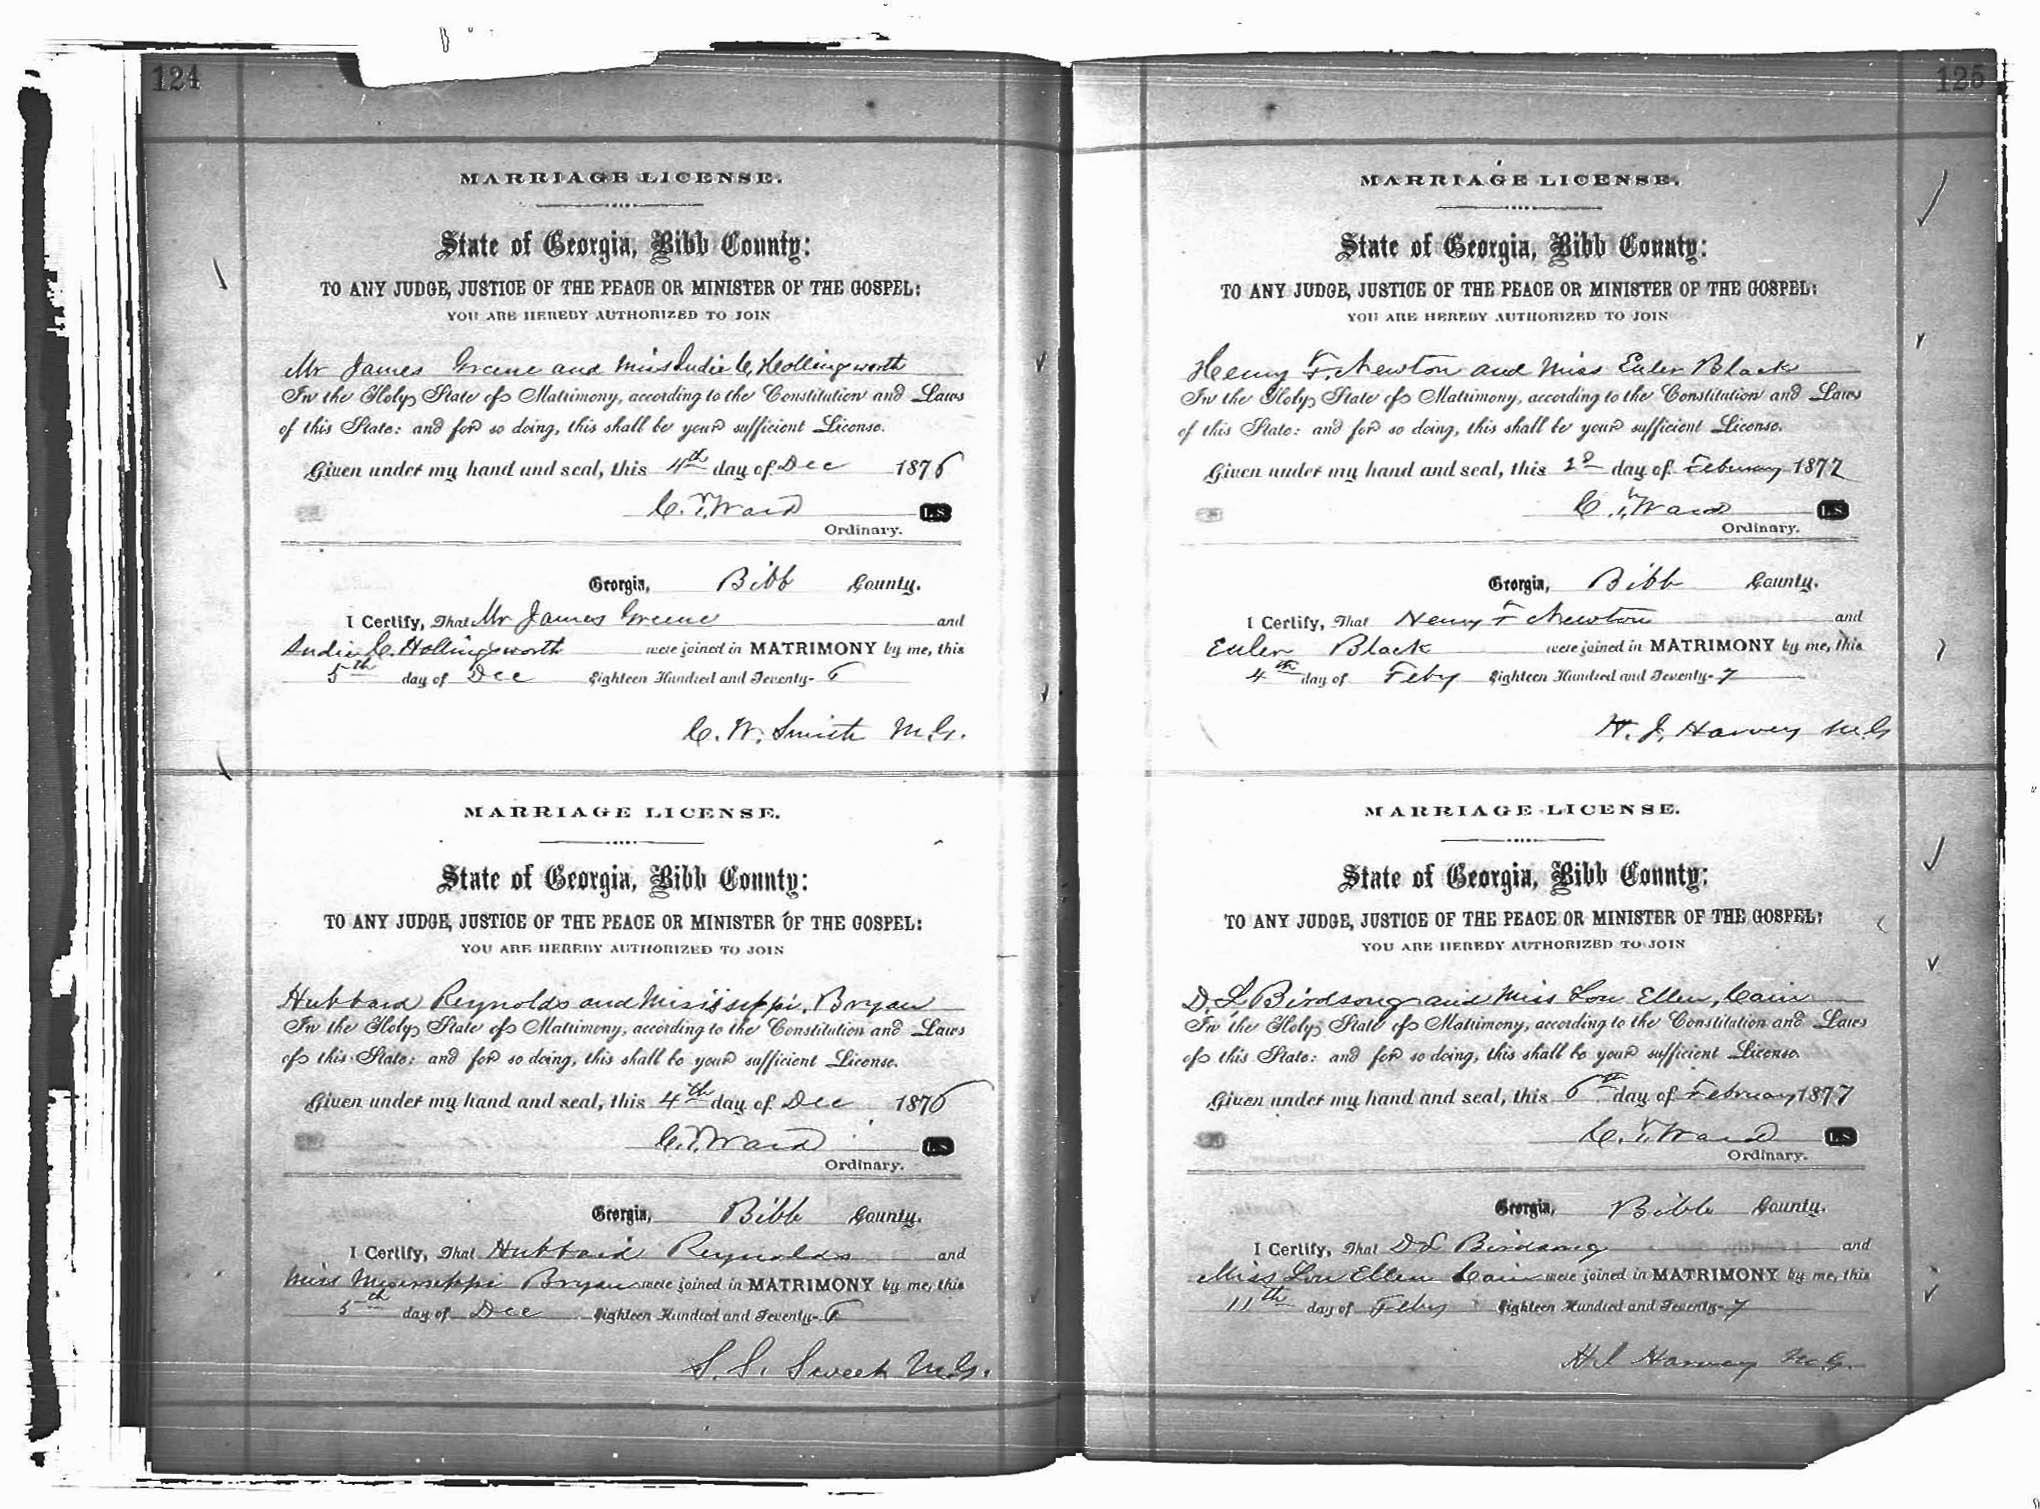 124
MARRIAGE LICENSE.
State of Georgia, Bibb County:
TO ANY JUDGE, JUSTICE OF THE PEACE OR MINISTER OF THE GOSPEL:
YOU ARE HEREBY AUTHORIZED TO JOIN
Mr James Greene and Miss Indie C. Hollingsworth
In the Holy State of Matrimony, according to the Constitution and Laws
of this State: and for so doing, this shall be your sufficient License.
Given under my hand and seal, this 4th day of Dec 1876
C. T. Ward L.S.
Ordinary.
Georgia, Bibb County.
I Certify, That Mr James Greene and
Indie C. Hollingsworth were joined in MATRIMONY by me, this
5th day of Dec Eighteen Hundred and Seventy-6
C. W. Smith M.G.
MARRIAGE LICENSE.
State of Georgia, Bibb County:
TO ANY JUDGE, JUSTICE OF THE PEACE OR MINISTER OF THE GOSPEL:
YOU ARE HEREBY AUTHORIZED TO JOIN
Hubbard Reynolds and Mississippi Bryan
In the Holy State of Matrimony, according to the Constitution and Laws
of this State: and for so doing, this shall be your sufficient License.
Given under my hand and seal, this 4th day of Dec 1876
C. T. Ward L.S.
Ordinary.
Georgia, Bibb County.
I Certify, That Hubbard Reynolds and
Miss Mississippi Bryan were joined in MATRIMONY by me, this
5th day of Dec Eighteen Hundred and Seventy-6
S. S. Sweet M.G.
125
MARRIAGE LICENSE.
State of Georgia, Bibb County:
TO ANY JUDGE, JUSTICE OF THE PEACE OR MINISTER OF THE GOSPEL:
YOU ARE HEREBY AUTHORIZED TO JOIN
Henry F. Newton and Miss Euler Black
In the Holy State of Matrimony, according to the Constitution and Laws
of this State: and for so doing, this shall be your sufficient License.
Given under my hand and seal, this day of Febuary 1877
C. T. Ward L.S.
Ordinary.
Georgia, Bibb County.
I Certify, That Henry F Newton and
Euler Black were joined in MATRIMONY by me, this
4th day of Feby Eighteen Hundred and Seventy-7
H. J. Harvey M.G
MARRIAGE LICENSE.
State of Georgia, Bibb County:
TO ANY JUDGE, JUSTICE OF THE PEACE OR MINISTER OF THE GOSPEL:
YOU ARE HEREBY AUTHORIZED TO JOIN
D. L. Birdsong and Miss Lou Ellen Cain
In the Holy State of Matrimony, according to the Constitution and Laws
of this State: and for so doing, this shall be your sufficient License.
Given under my hand and seal, this 6th day of February 1877
C. T. Ward L.S.
Ordinary.
Georgia, Bibb County.
I Certify, That D L Birdsong and
Miss Lou Ellen Cain were joined in MATRIMONY by me, this
11th day of Feby Eighteen Hundred and Seventy-7
H J Harvey M.G.